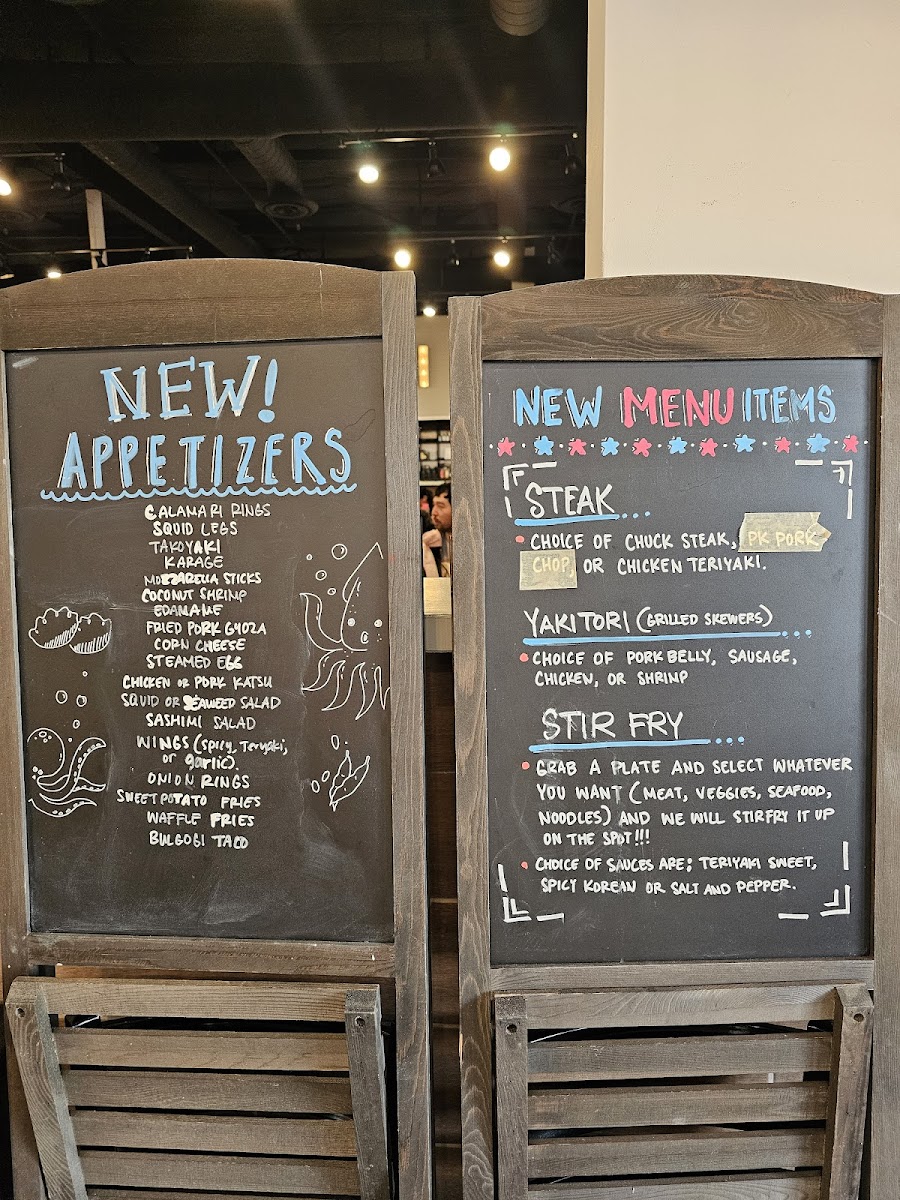 NEW!
APPETIZERS
CALAMARI RINGS
SQUID LEGS
TAKOYAKI
KARAGE
MOZZARELLA STICKS
COCONUT SHRIMP
EDAMAME
FRIED PORK GYOZA
CORN CHEESE
STEAMED EGG
CHICKEN OR PORK KATSU
SQUID OR SEAWEED SALAD
SASHIMI SALAD
WINGS (spicy, Teryaki,
or garlic).
ONION RINGS
SWEET POTATO FRIES
WAFFLE FRIES
BULGOGI TACO
NEW MENU ITEMS
STEAK
• CHOICE OF CHUCK STEAK, PK PORK
CHOP, OR CHICKEN TERIYAKI.
YAKITORI (GRILLED SKEWERS)
• CHOICE OF PORK BELLY, SAUSAGE,
CHICKEN, OR SHRIMP
STIR FRY
• GRAB A PLATE AND SELECT WHATEVER
YOU WANT (MEAT, VEGGIES, SEAFOOD,
NOODLES) AND WE WILL STIRFRY IT UP
ON THE SPOT!!!
• CHOICE OF SAUCES ARE; TERIYAKI SWEET,
SPICY KOREAN OR SALT AND PEPPER.